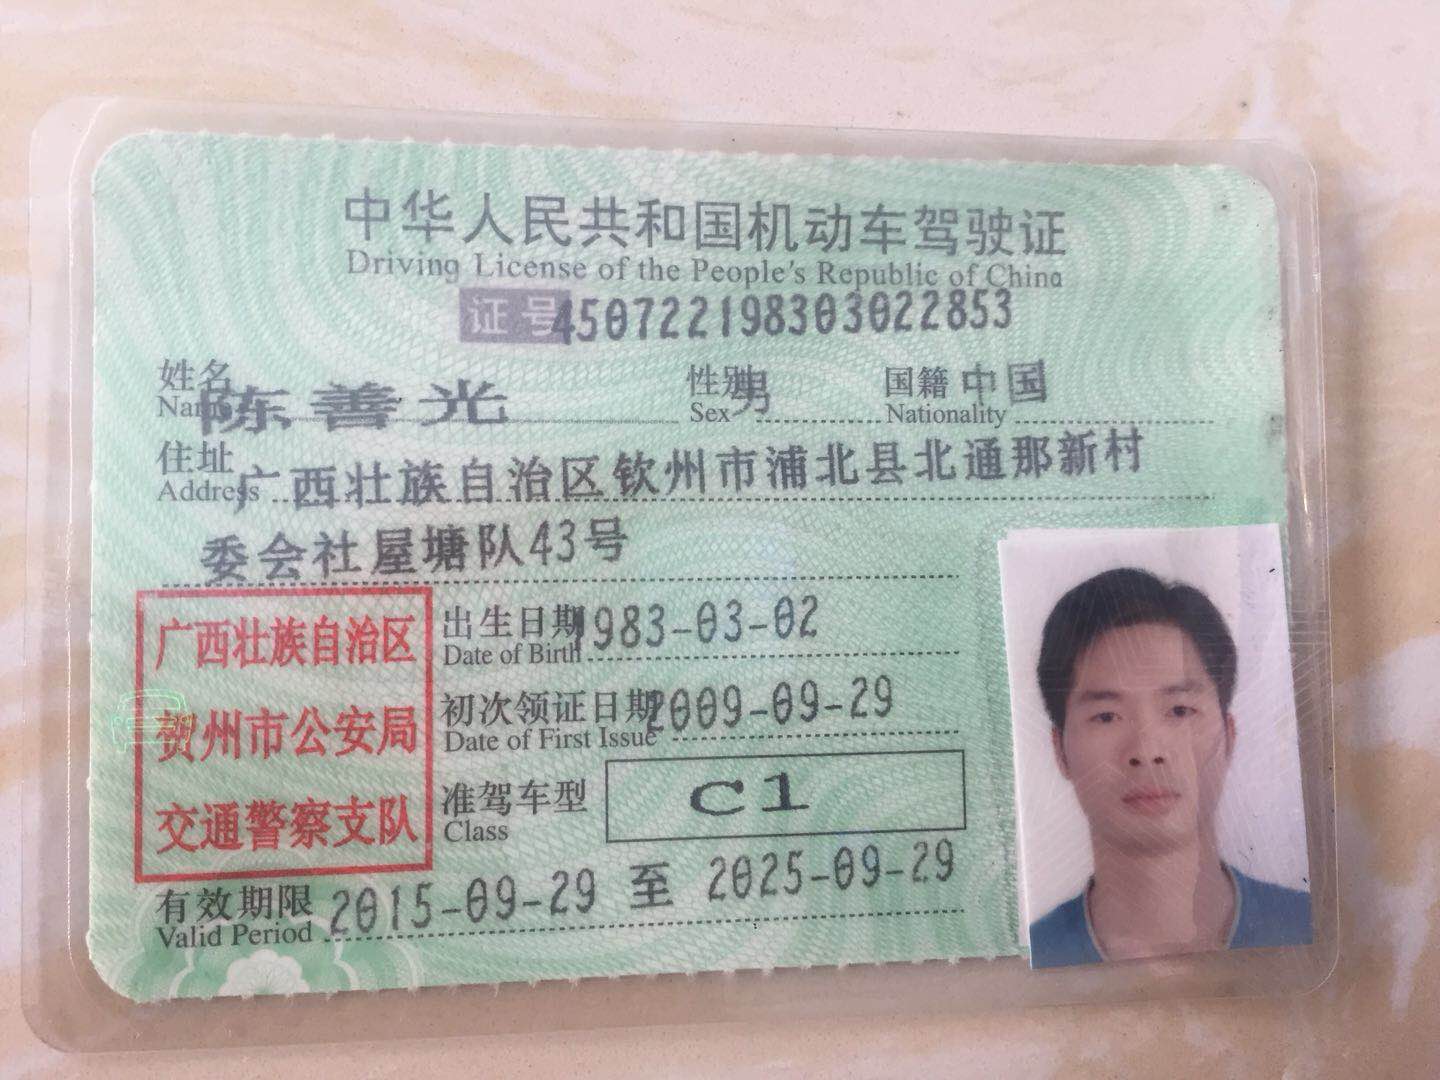 中华人民共和国机动车驾驶证
Driving License of the People's Republic of China
证号 450722198303022853
姓名 陈善光 性别 男 国籍 中国
Name Sex Nationality
住址 广西壮族自治区钦州市浦北县北通那新村
Address
委会社屋塘队43号
广西壮族自治区
贺州市公安局
交通警察支队
出生日期 1983-03-02
Date of Birth
初次领证日期 2009-09-29
Date of First Issue
准驾车型 C1
Class
有效期限 2015-09-29 至 2025-09-29
Valid Period